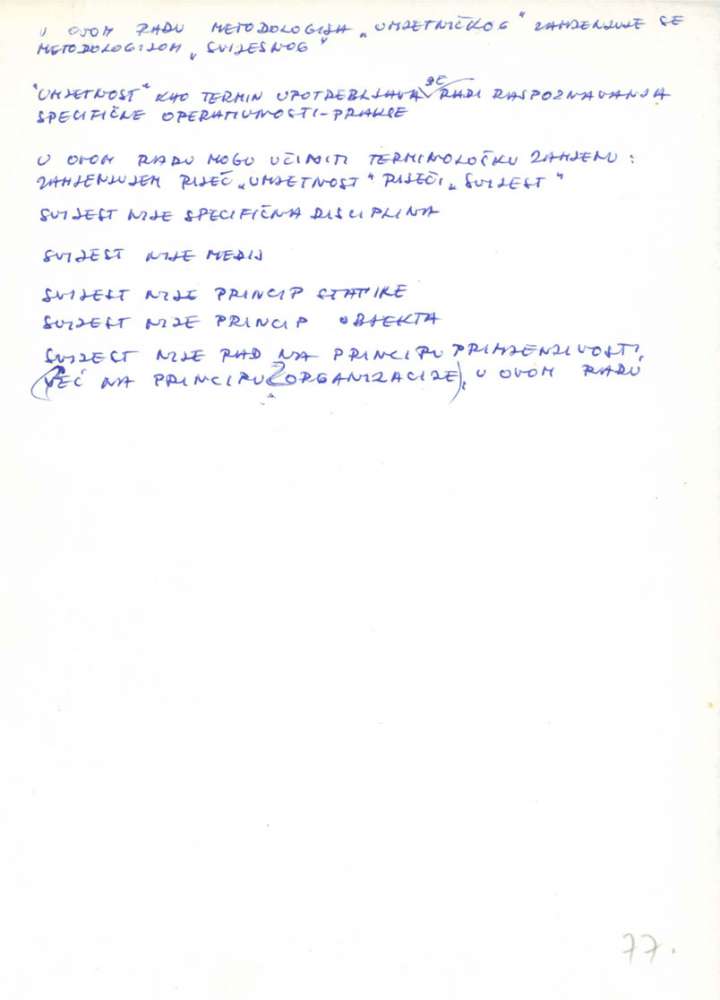 U OVOM RADU METODOLOGIJA „UMJETNIČKOG" ZAMJENJUJE SE
METODOLOGIJOM „SVIJESNOG"
"UMJETNOST" KAO TERMIN UPOTREBLJAVA SE RADI RASPOZNAVANJA
SPECIFIČNE OPERATIVNOSTI-PRAKSE
U OVOM RADU MOGU UČINITI TERMINOLOŠKU ZAMJENU :
ZAMJENJUJEM RIJEČ „UMJETNOST" RIJEČI „SVIJEST"
SVIJEST NIJE SPECIFIČNA DISCIPLINA
SVIJEST NIJE MEDIJ
SVIJEST NIJE PRINCIP STATIKE
SVIJEST NIJE PRINCIP OBJEKTA
SVIJEST NIJE RAD NA PRINCIPU PRIMJENJIVOSTI,
(VEĆ NA PRINCIPU ORGANIZACIJE), U OVOM RADU
77.